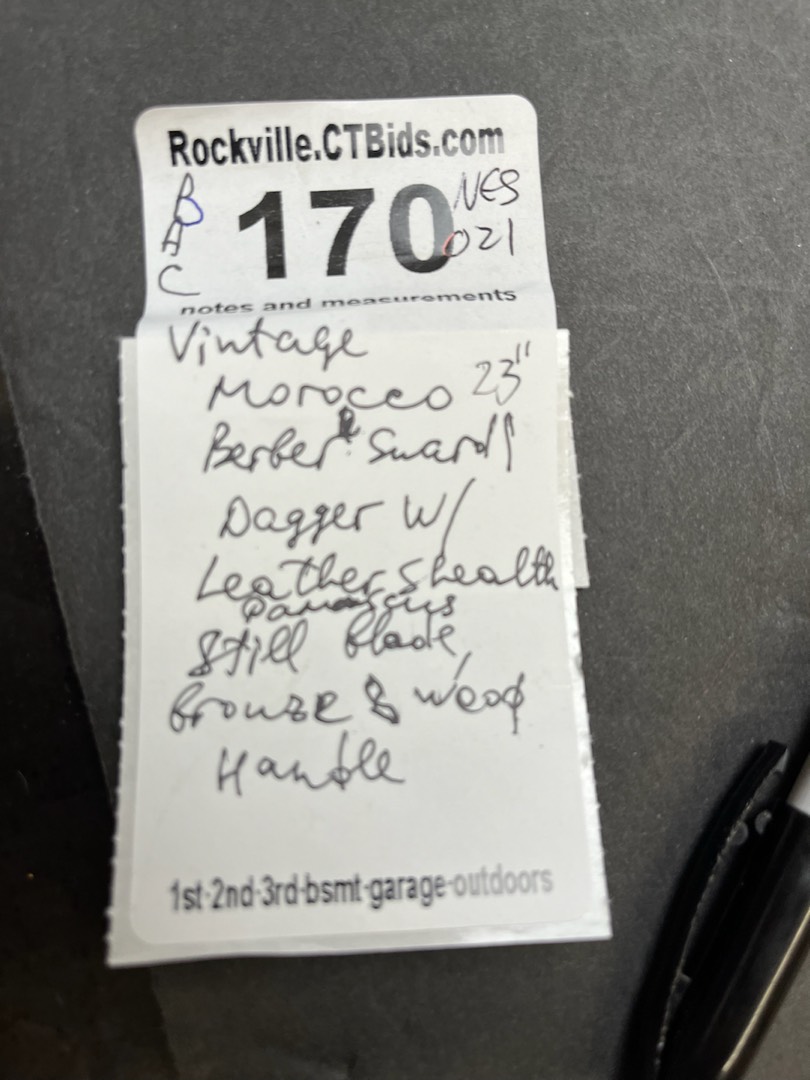 Rockville.CTBids.com
B
A
C
170
NES
021
notes and measurements
Vintage
Morocco 23"
Berber Sward
Dagger W/
Leather Shealth
Damascus
Still Blade,
Bronze & Wood
Handle
1st-2nd-3rd-bsmt-garage-outdoors